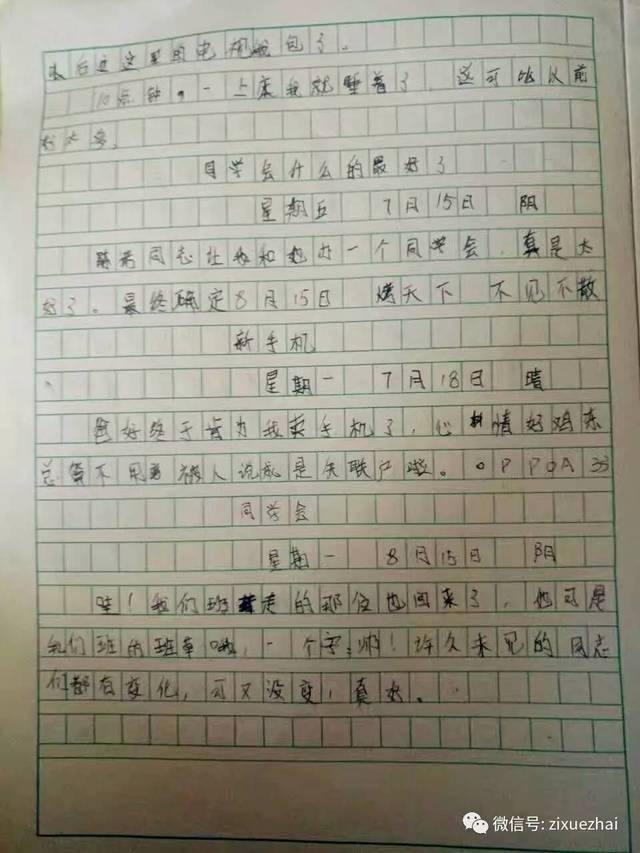 以后这里的电视我包了。
10点钟,一上床我就睡着了,这可比以前
太多。
同学会什么的最好了
星期五 7月15日 阴
同志让我和她办一个同学会,真是太
好了。最终确定8月15日 烤天下 不见不散
新手机
星期一 7月18日 晴
爸妈终于肯为我买手机了,心情好鸡冻
总算不用再被人说成是失联户啦。OPPOA33
同学会
星期一 8月15日 阴
哇!我们班走的那位也回来了,他可是
我们班的班草哦,一个字:帅!许久未见的同志
们都有变化,可又没变,真好。
微信号: zixuezhai